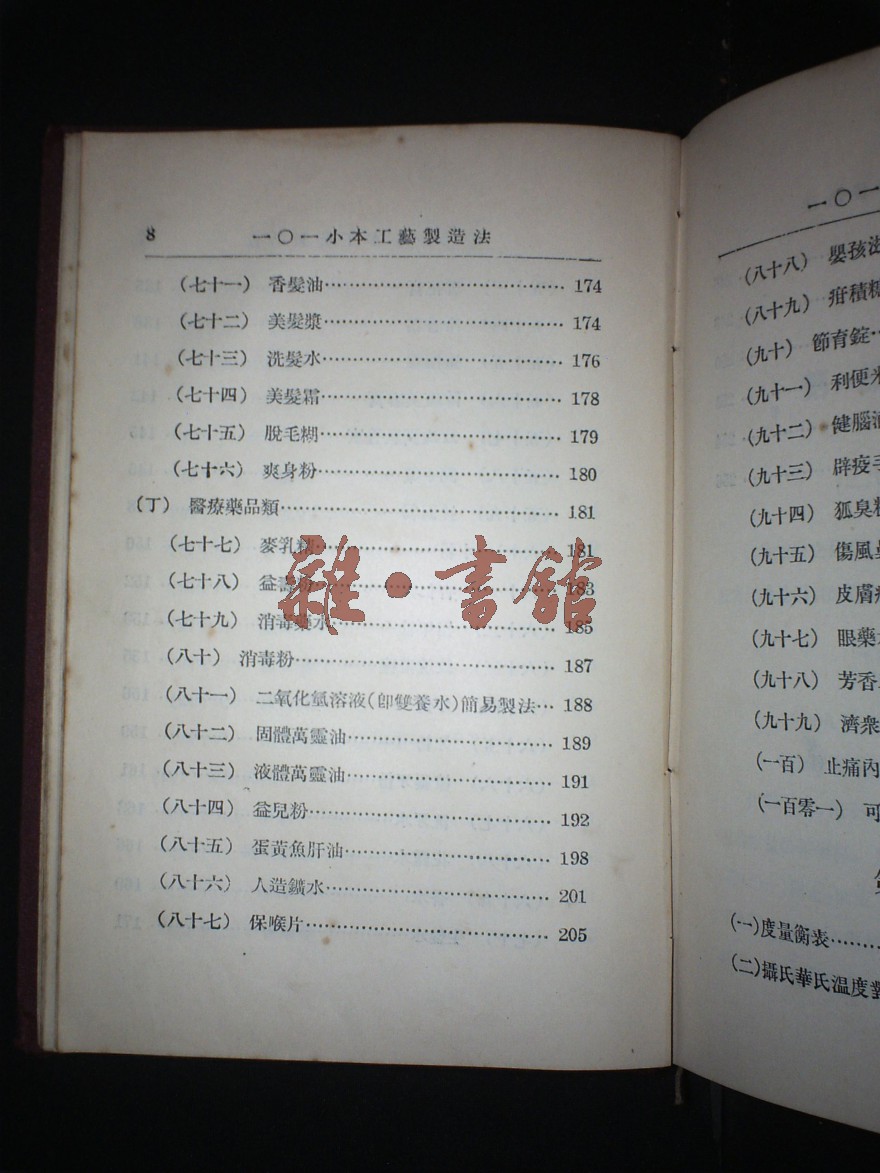 8 一〇一小本工藝製造法
(七十一) 香髮油 174
(七十二) 美髮漿 174
(七十三) 洗髮水 176
(七十四) 美髮霜 178
(七十五) 脫毛糊 179
(七十六) 爽身粉 180
(丁) 醫療藥品類 181
(七十七) 麥乳精 181
(七十八) 益壽粉 183
(七十九) 消毒藥水 185
(八十) 消毒粉 187
(八十一) 二氧化氫溶液(卽雙養水)簡易製法 188
(八十二) 固體萬靈油 189
(八十三) 液體萬靈油 191
(八十四) 益兒粉 192
(八十五) 蛋黃魚肝油 198
(八十六) 人造鑛水 201
(八十七) 保喉片 205
雜·書館
一〇一
(八十八) 嬰孩
(八十九) 疳積糖
(九十) 節育錠
(九十一) 利便
(九十二) 健腦
(九十三) 辟疫
(九十四) 狐臭
(九十五) 傷風
(九十六) 皮膚
(九十七) 眼藥
(九十八) 芳香
(九十九) 濟衆
(一百) 止痛
(一百零一) 可
(一)度量衡表
(二)攝氏華氏温度